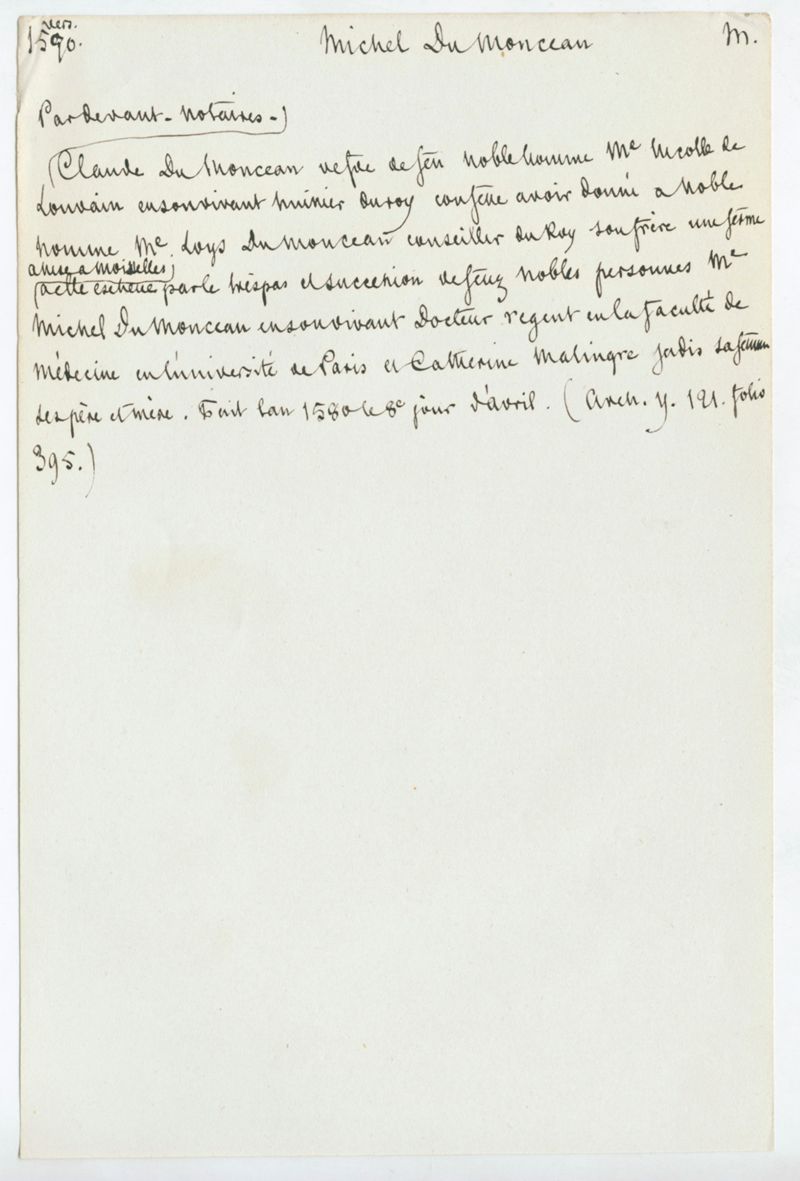 vers.
1590. Michel Du Monceau M.
Pardevant - notaires -)
(Claude Du Monceau vefve de feu noble homme Me Nicolle de
Louvain en son vivant huissier du roy confesse avoir donné a noble
homme Me. Loys Du Monceau conseiller du Roy son frère une ferme
assise a Moisselles)
(a elle escheue par le trespas et succession de feuz nobles personnes Me
Michel Du Monceau en son vivant Docteur regent en la faculté de
Médecine en l'université de Paris et Catherine Malingre jadis sa femme
ses père et mère. Fait l'an 1580 le 8e jour d'avril. (Arch. Y. 121. folio
395.)